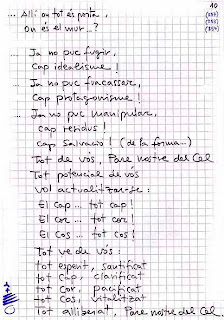 10
... Allí on tot és porta,
On és el mur...?
... Ja no puc fugir,
Cap idealisme!
... Ja no puc fracassar,
Cap protagonisme!
... Ja no puc manipular,
Cap residus!
Cap salvació! (de la forma...)
Tot de vós, Pare nostre del Cel
Tot potencial de vós
Vol actualitzar-se:
El cap... tot cap!
El cor... tot cor!
El cos... tot cos!
Tot ve de vós:
tot esperit, santificat
tot cap, clarificat
tot cor, pacificat
tot cos, vitalitzat
tot alliberat, Pare nostre del Cel